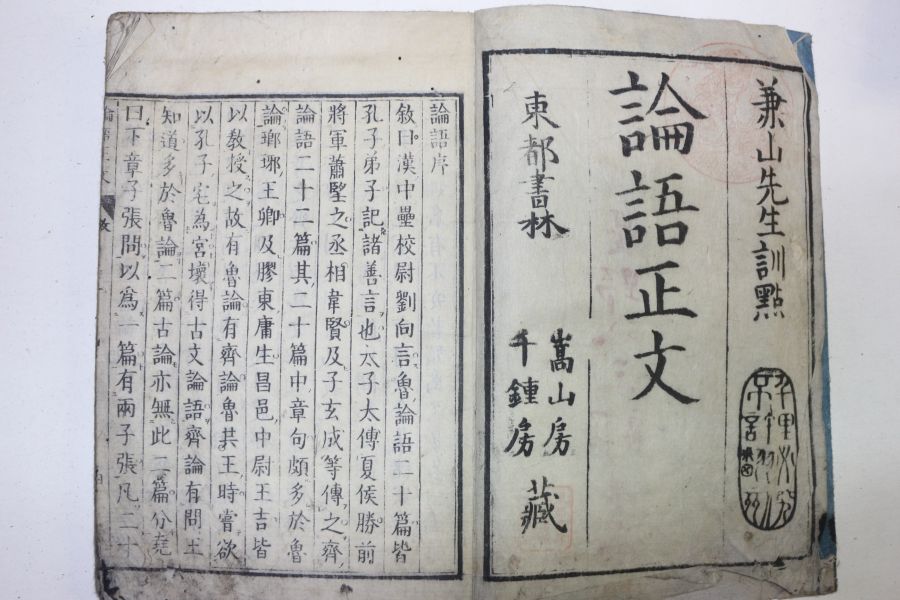 兼山先生訓點
論語正文
東都書林
嵩山房
千鍾房
藏
論語序
敘曰漢中壘校尉劉向言魯論語二十篇皆
孔子弟子記諸善言也太子太傅夏侯勝前
將軍蕭望之丞相韋賢及子玄成等傳之齊
論語二十二篇其二十篇中章句頗多於魯
論瑯琊王卿及膠東庸生昌邑中尉王吉皆
以敎授之故有魯論有齊論魯共王時嘗欲
以孔子宅為宮壞得古文論語齊論有問王
知道多於魯論二篇古論亦無此二篇分堯
曰下章子張問以爲一篇有兩子張凡二十